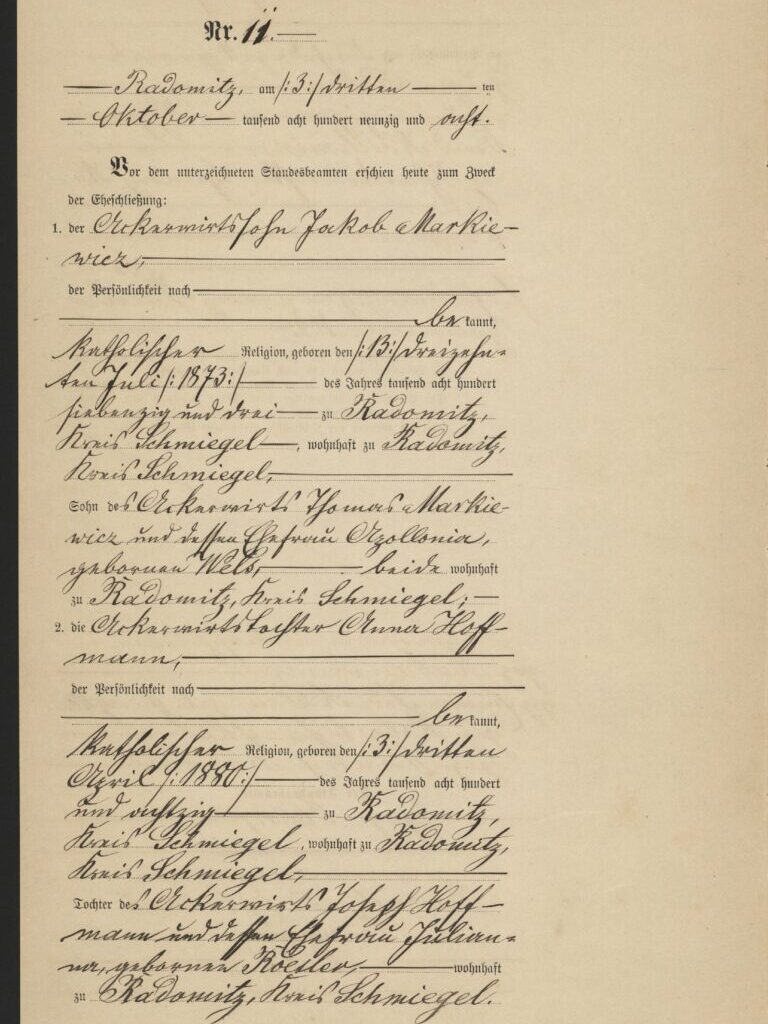 Nr. 11.
Radomitz, am /:3:/ dritten ten
Oktober tausend acht hundert neunzig und acht.
Vor dem unterzeichneten Standesbeamten erschien heute zum Zweck
der Eheschließung:
1. der Ackerwirtssohn Jakob Markie-
wicz,
der Persönlichkeit nach
be kannt,
katholischer Religion, geboren den /:13:/ dreizehn-
ten Juli /:1873:/ des Jahres tausend acht hundert
siebenzig und drei zu Radomitz,
Kreis Schmiegel, wohnhaft zu Radomitz,
Kreis Schmiegel,
Sohn des Ackerwirts Thomas Markie-
wicz und dessen Ehefrau Apollonia,
gebornen Wels, beide wohnhaft
zu Radomitz, Kreis Schmiegel;
2. die Ackerwirtstochter Anna Hoff-
mann,
der Persönlichkeit nach
be kannt,
katholischer Religion, geboren den /:3:/ dritten
April /:1880:/ des Jahres tausend acht hundert
und achtzig zu Radomitz,
Kreis Schmiegel, wohnhaft zu Radomitz,
Kreis Schmiegel,
Tochter des Ackerwirts Joseph Hoff-
mann und dessen Ehefrau Julian-
na, gebornen Roesler, wohnhaft
zu Radomitz, Kreis Schmiegel.